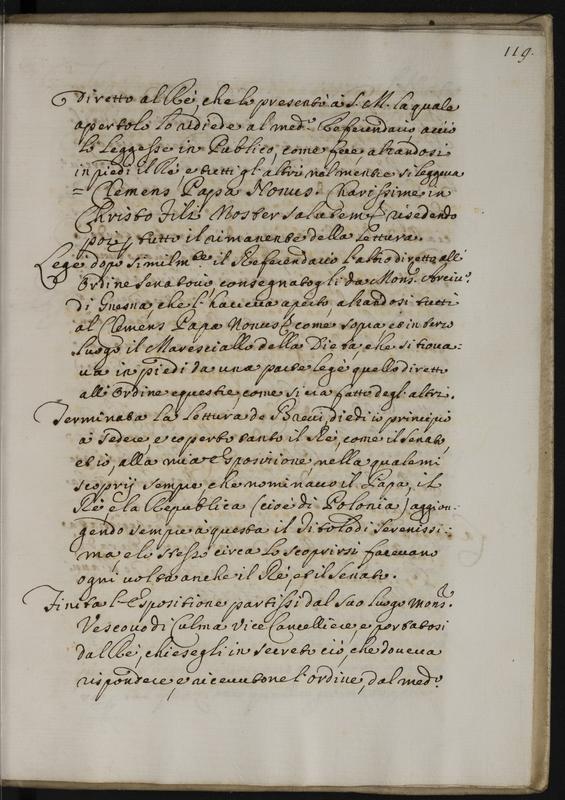 119.
Diretto al Rè, che lo presentò à S. M. la quale
apertolo lo ridiede al med.º Referendario, acciò
lo leggesse in Publico, come fece, alzandosi
in piedi il Rè e tutti gl'altri nel mentre si leggeua
= Clemens Papa Nonus. Charissime in
Christo Fili Noster salutem & risedendo
poi tutti il rimanente della lettura.
Legè dopo similm.te il Referendario l'altro diretto all'
Ordine Senatorio consegnatogli da Mons.r Arciu.º
di Gnesna, che l'haueua aperto, alzandosi tutti
al Clemens Papa Nonus & come sopra et in terzo
luogo il Maresciallo della Dieta, che si troua-
ua in piedi da una parte legè quello diretto
all'Ordine equestre, come si era fatto degl'altri.
Terminata la lettura de Breui, diedi io principio
à sedere, e coperto tanto il Rè, come il Senato,
et io, alla mia Espositione, nella quale mi
scoprij sempre che nominauo il Papa, il
Rè e la Republica (cioè di Polonia) aggion-
gendo sempre à questa il Titolo di Serenissi-
ma, e lo stesso circa lo scoprirsi faceuano
ogni uolta anche il Rè, et il Senato.
Finita l'Espositione partissi dal suo luogo Mons.r
Vescouo di Culma Vice Cancelliere, e portatosi
dal Rè, chiesegli in secreto ciò, che doueua
rispondere, e riceuutone l'ordine, dal med.º